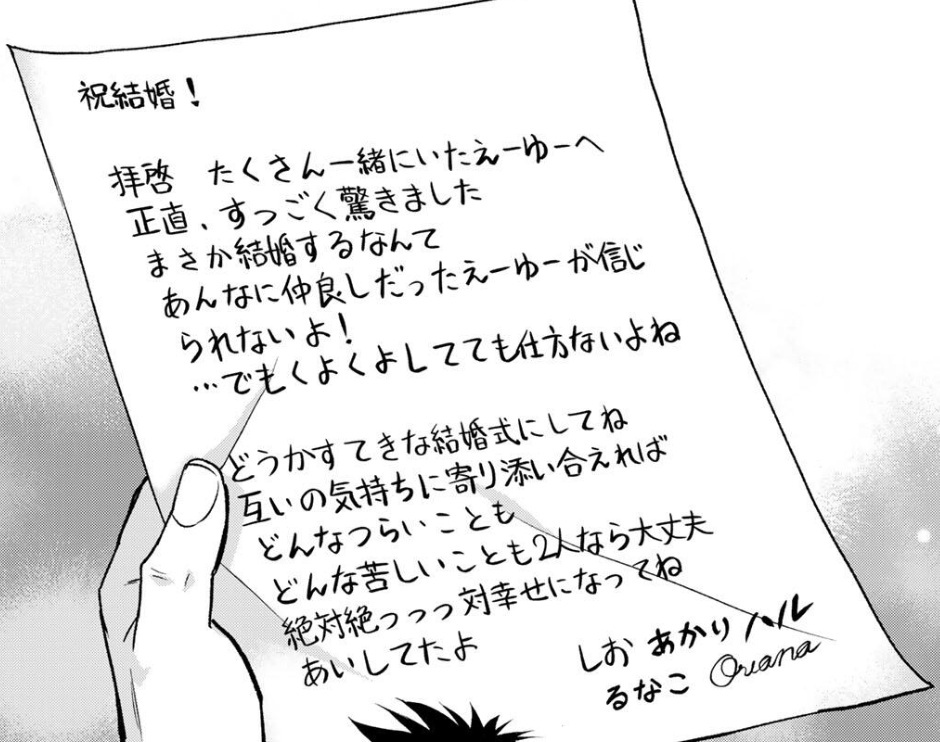 祝結婚！
拝啓　たくさん一緒にいたえーゆーへ
正直、すっごく驚きました
まさか結婚するなんて
あんなに仲良しだったえーゆーが信じ
られないよ！
…でもくよくよしてても仕方ないよね
どうかすてきな結婚式にしてね
互いの気持ちに寄り添い合えれば
どんなつらいことも
どんな苦しいことも2人なら大丈夫
絶対絶っっっ対幸せになってね
あいしてたよ
しお あかり ハル
るなこ Oriana